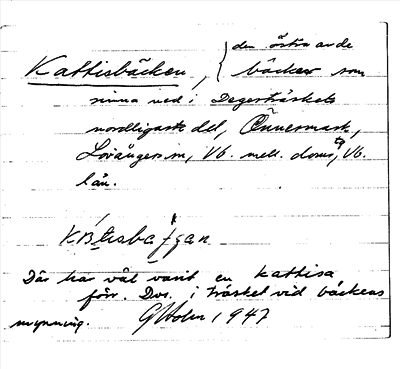 den östra av de
Kattisbäcken, { bäckar som
rinna ned i Degerträskets
nordligaste del, Önnermark,
Lövångers sn, Vb. mell. doms, Vb.
län.
Där har väl varit en kattisa
förr. Dvs. i träsket vid bäckens
mynning. GHolm 1947